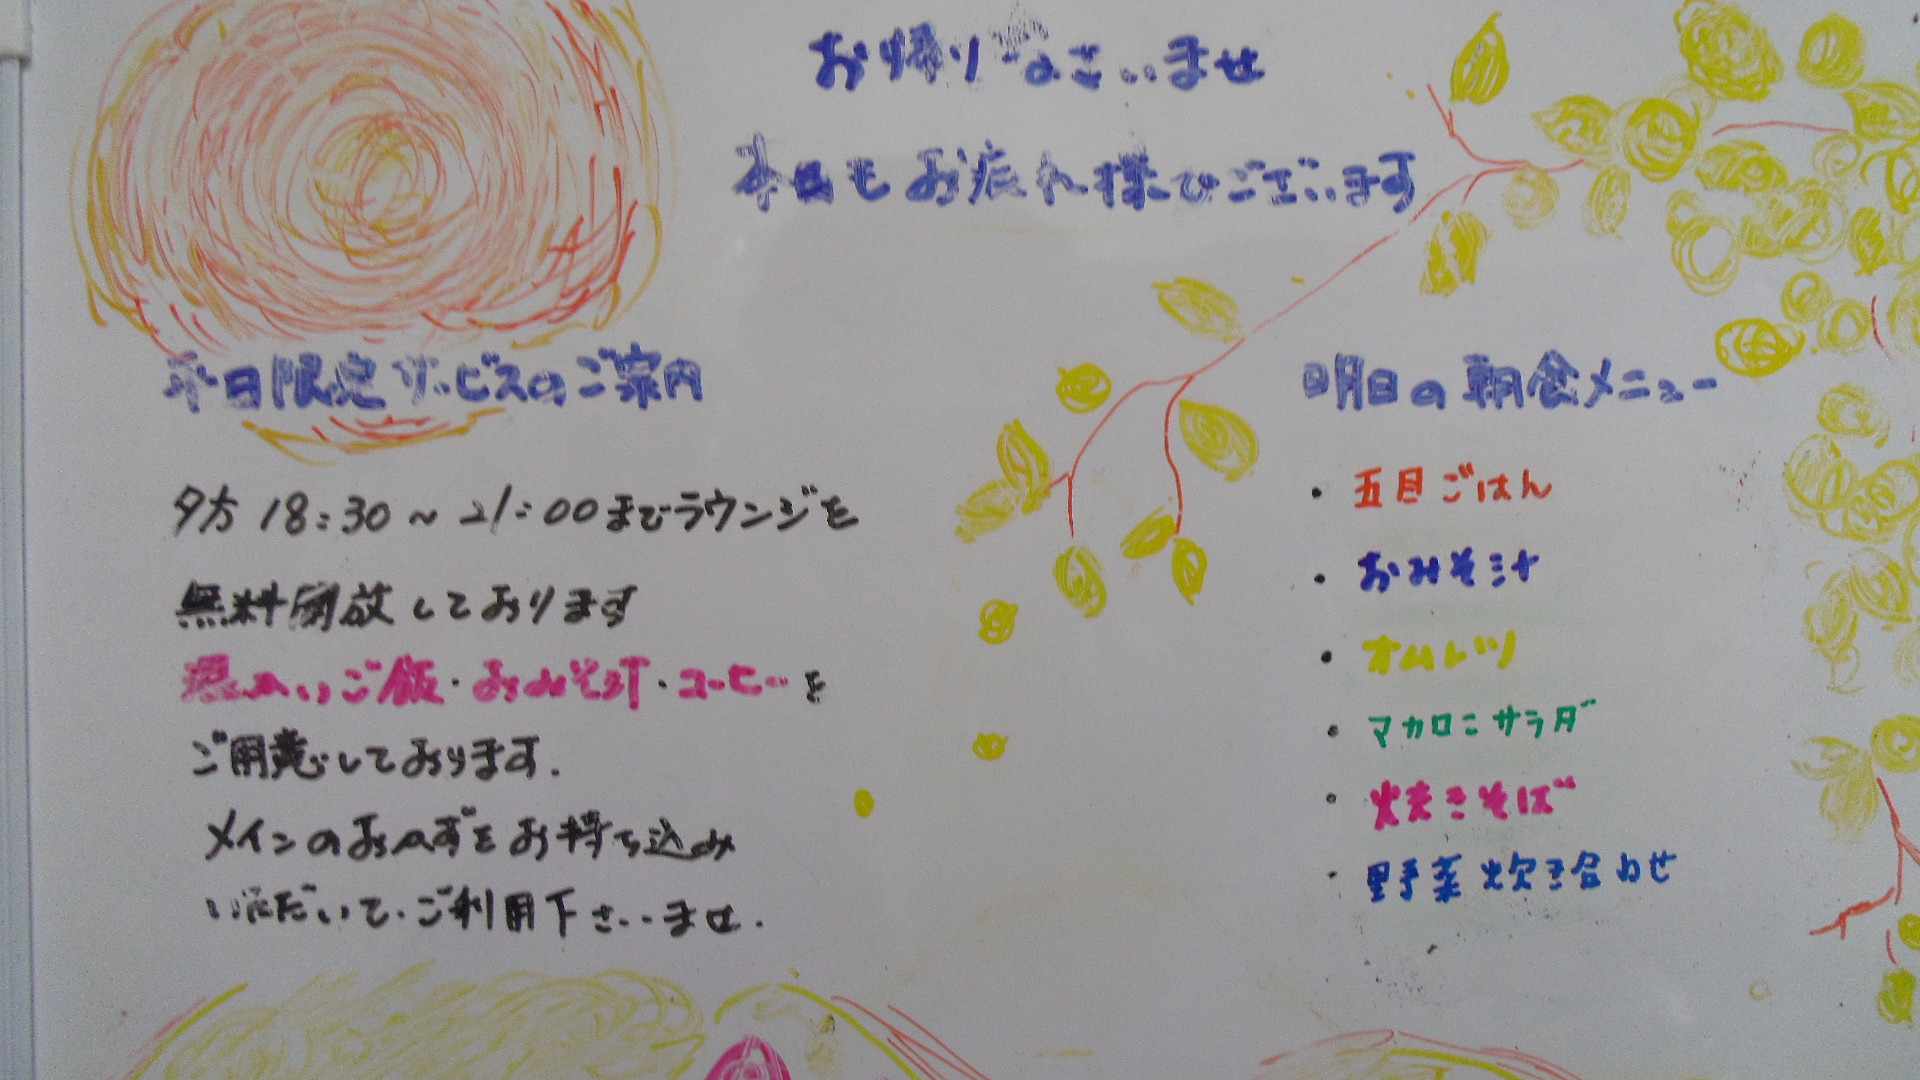 お帰りなさいませ
本日もお疲れ様でございます
平日限定サービスのご案内
夕方 18:30～21:00までラウンジを
無料開放しております
温かいご飯・おみそ汁・コーヒーを
ご用意しております.
メインのおかずをお持ち込み
いただいて、ご利用下さいませ.
明日の朝食メニュー
・五目ごはん
・おみそ汁
・オムレツ
・マカロニサラダ
・焼きそば
・野菜炊き合わせ